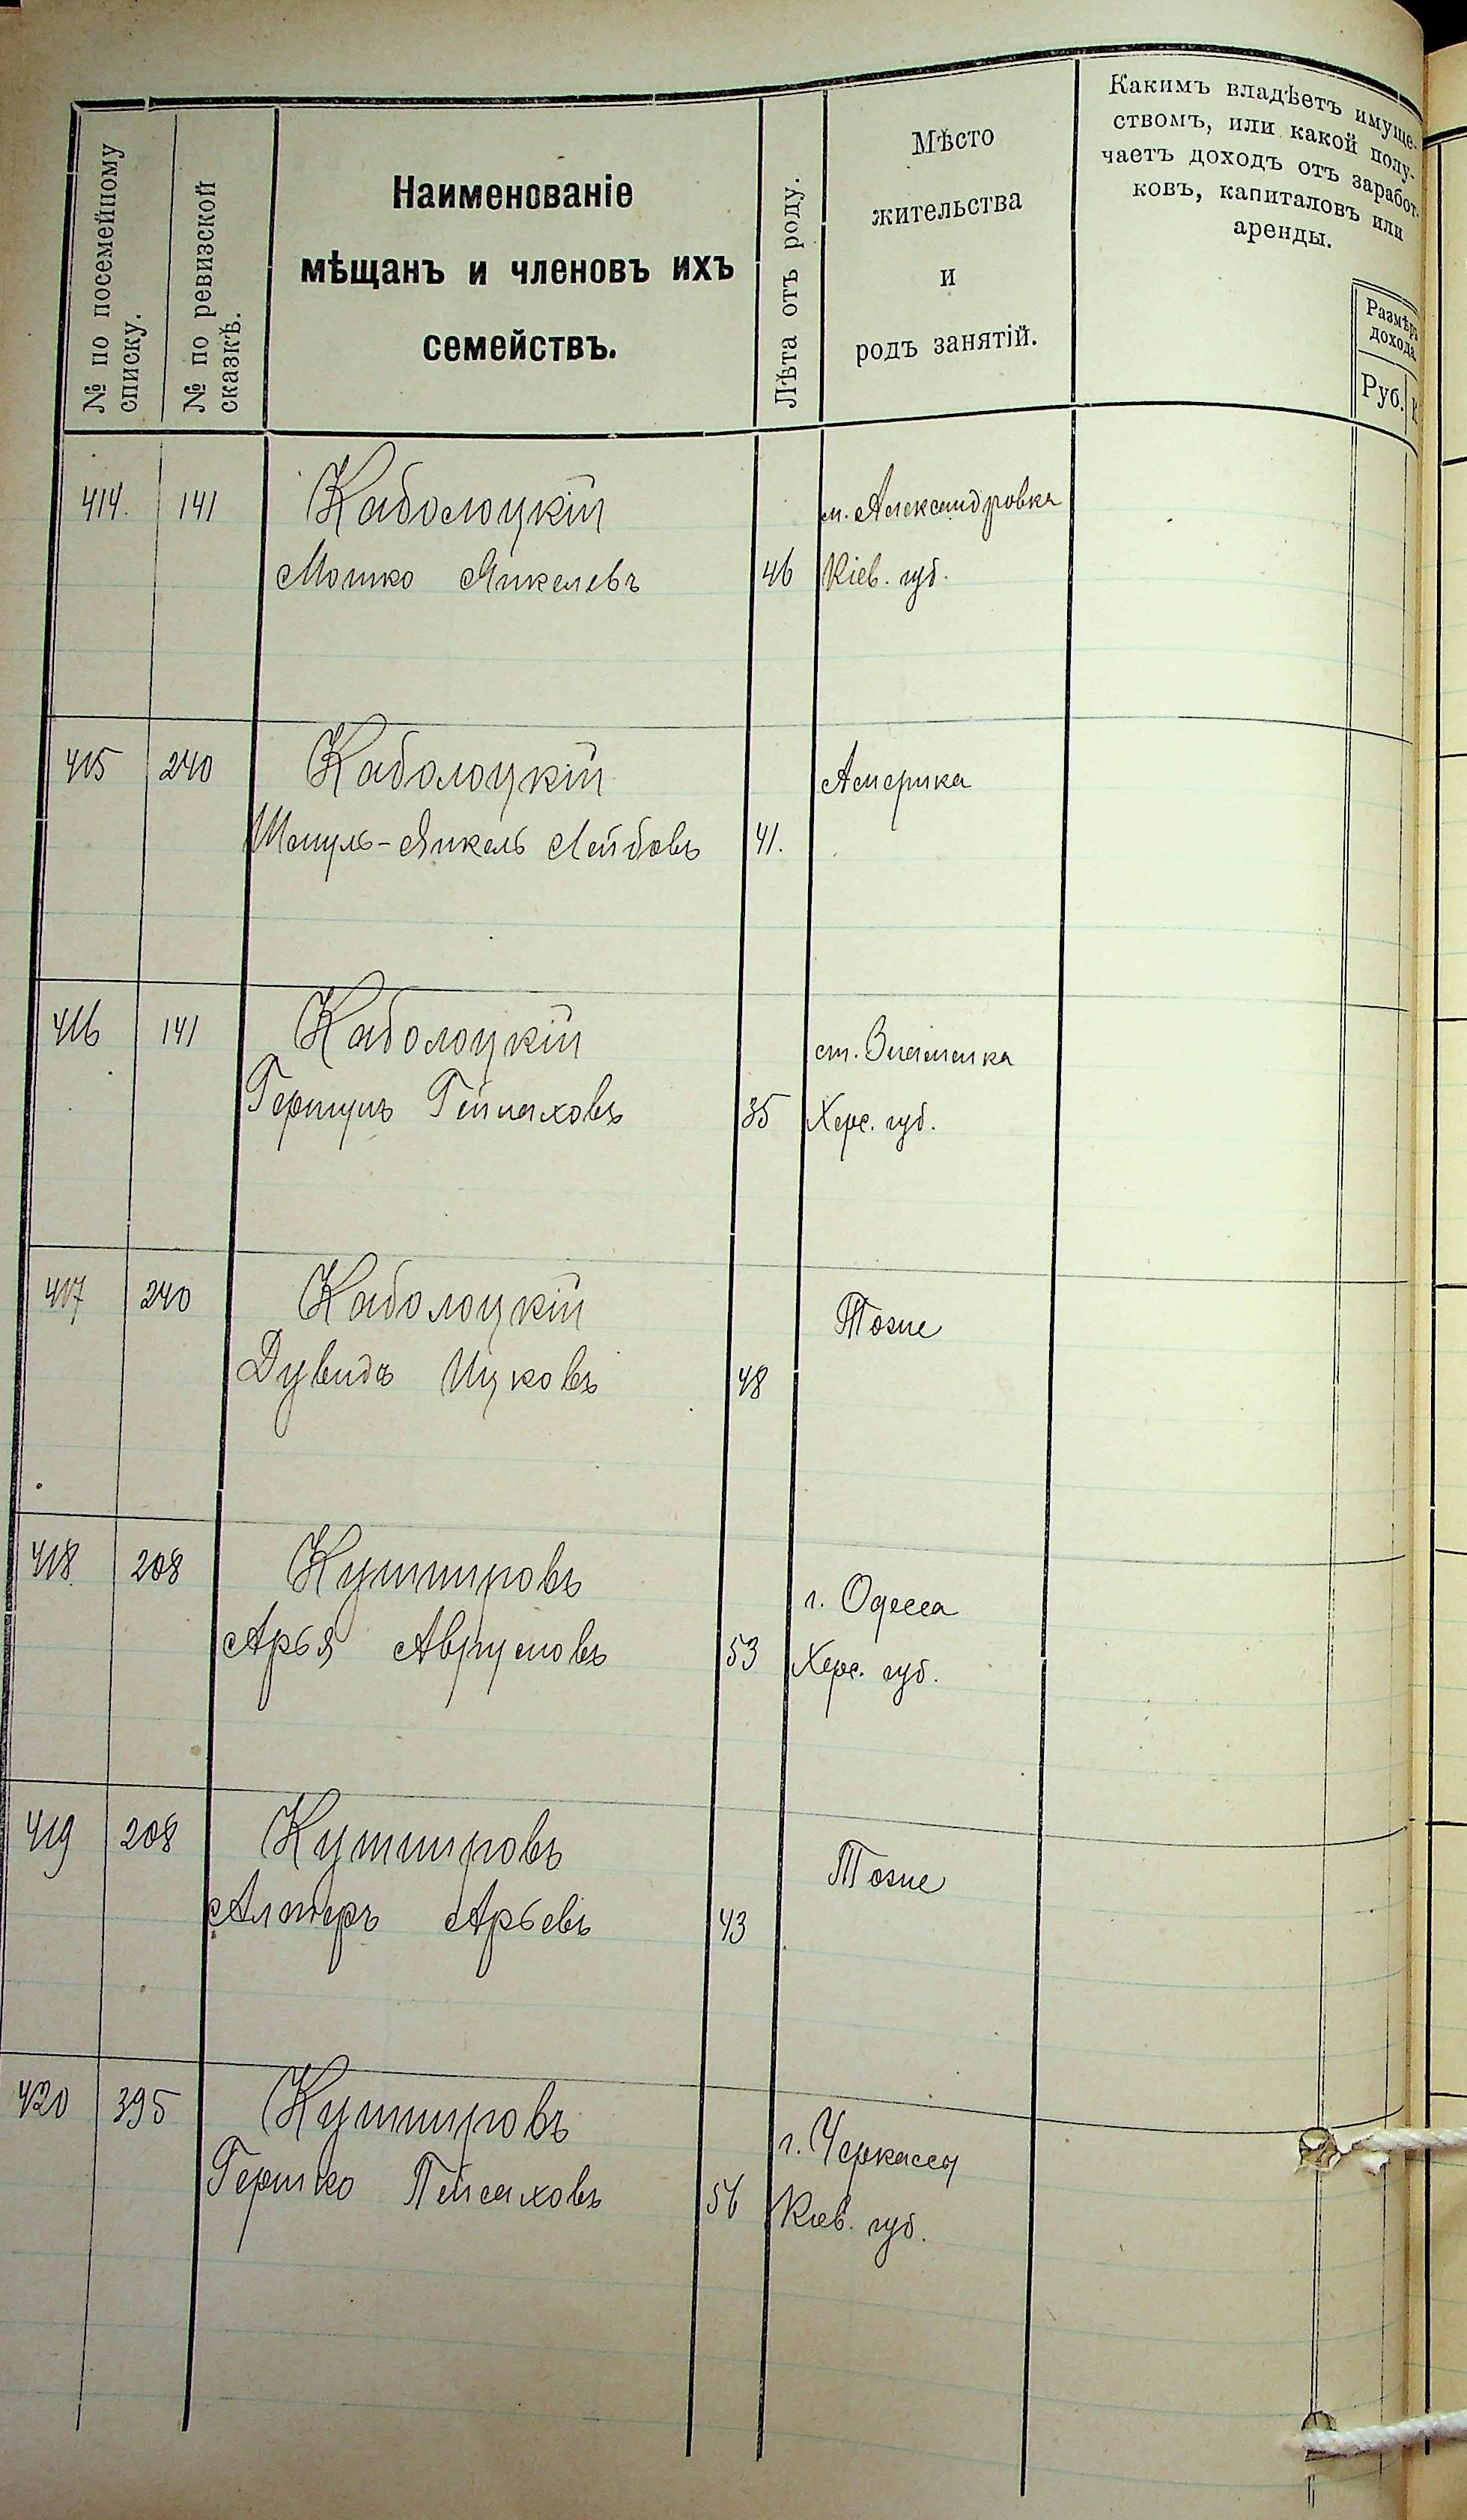 № по посемейному
списку.
№ по ревизской
сказкѣ.
Наименованіе
мѣщанъ и членовъ ихъ
семействъ.
Лѣта отъ роду.
Мѣсто
жительства
и
родъ занятій.
Какимъ владѣетъ имуще-
ствомъ, или какой полу-
чаетъ доходъ отъ заработ-
ковъ, капиталовъ или
аренды.
Размѣръ
дохода
Руб.
414. 141 Каболоцкій м. Александровка
Мошко Янкелевъ 46 Кіев. губ.
415 240 Каболоцкій Америка
Шмуль-Янкель Лейбовъ 41.
416 141 Каболоцкій ст. Знаменка
Гершунъ 35 Херс. губ.
417 240 Каболоцкій Тоже
Дувидъ Ицковъ 48
418 208 Кушнировъ г. Одесса
Арья Аврумовъ 53 Херс. губ.
419 208 Кушнировъ Тоже
Алтеръ Арьевъ 43
420 395 Кушнировъ г. Черкассы
Гершко Пейсаховъ 56 Кіев. губ.